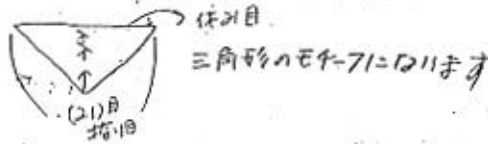 休み目
三角形のモチーフになります
(21)目
拾い目